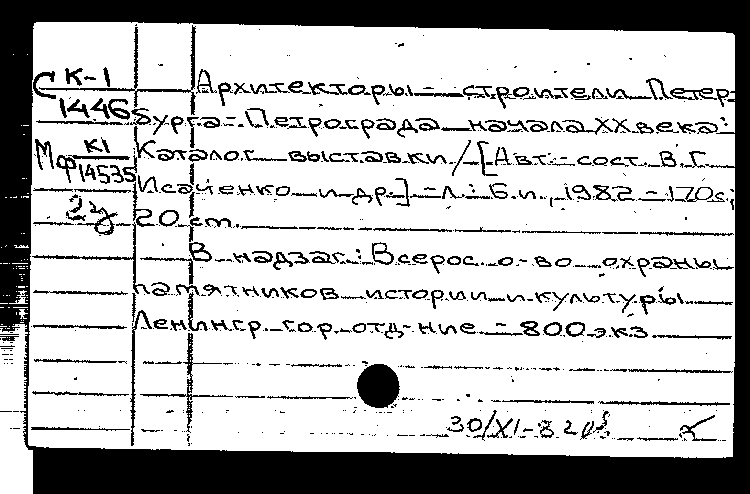 СК-1
1446
Мф К1
14535
2
Архитекторы - строители Петер-
бурга-Петрограда начала XX века:
Каталог выставки / [Авт.-сост. В.Г.
Исаченко и др.] - Л.: Б.и., 1982 - 170с;
20 cm.
В надзаг.: Всерос. о-во охраны
памятников истории и культуры
Ленингр. гор. отд-ние - 800 экз
30/XI-82